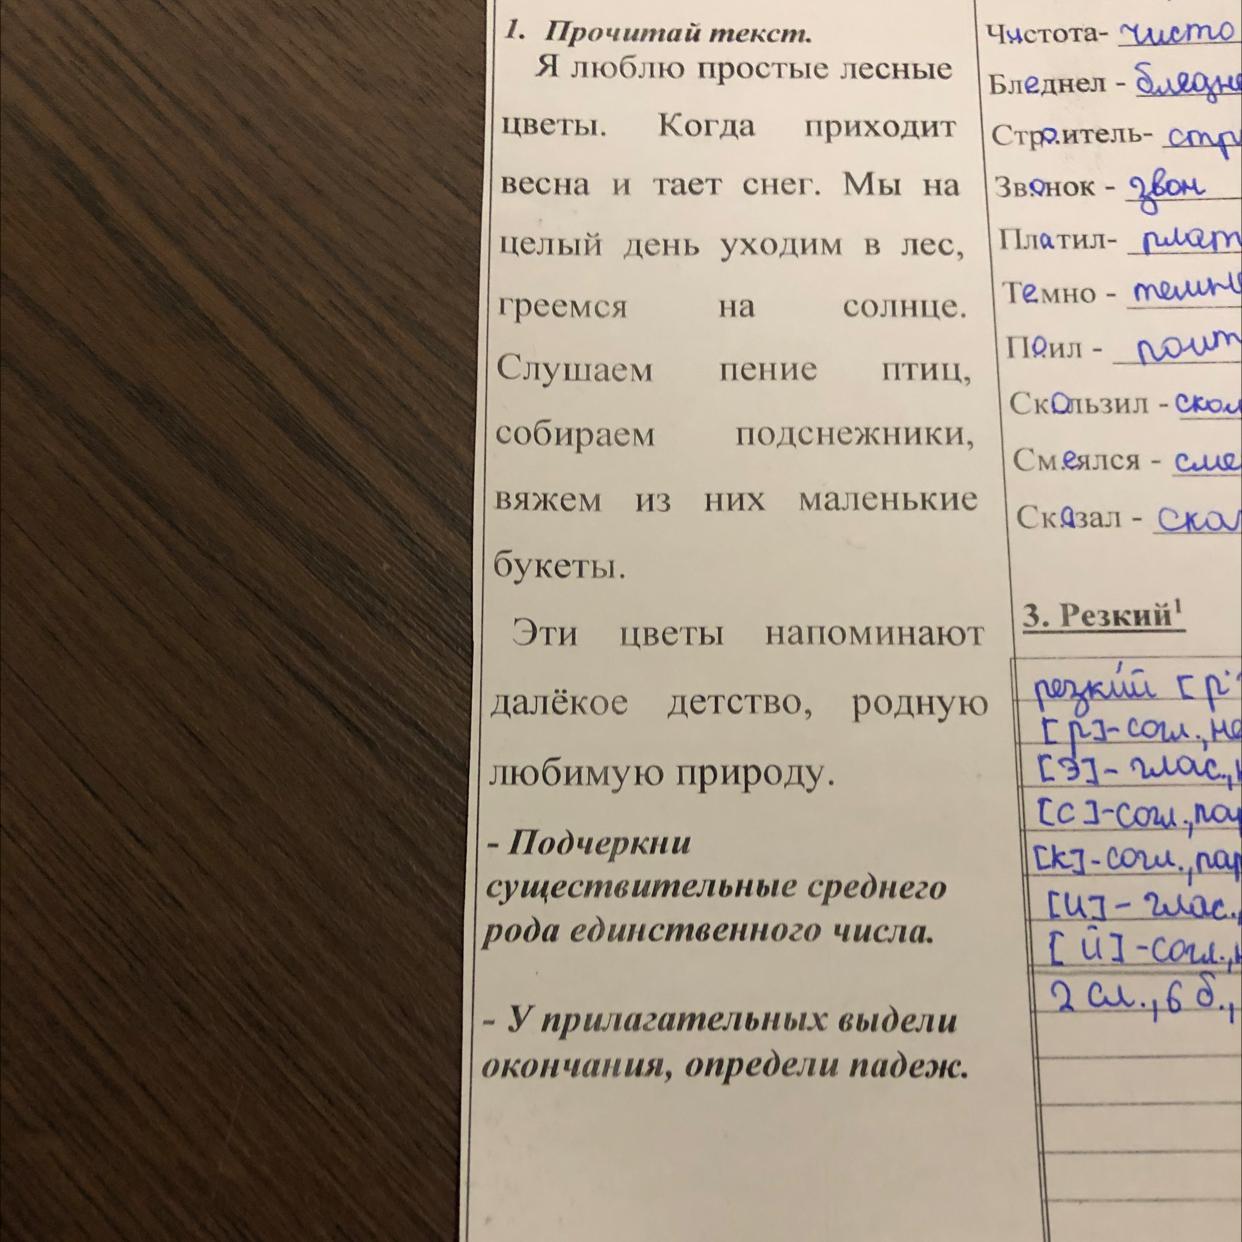 1. Прочитай текст.
Я люблю простые лесные
цветы. Когда приходит
весна и тает снег. Мы на
целый день уходим в лес,
греемся на солнце.
Слушаем пение птиц,
собираем подснежники,
вяжем из них маленькие
букеты.
Эти цветы напоминают
далёкое детство, родную
любимую природу.
- Подчеркни
существительные среднего
рода единственного числа.
- У прилагательных выдели
окончания, определи падеж.
Чистота- чисто
Бледнел -
Строитель-
Звонок - звон
Платил-
Темно -
Поил -
Скользил -
Смеялся -
Сказал -
3. Резкий¹
резкий [р'
[р]-согл.,
[э]- глас.,
[с]-согл.,
[к]-согл.,
[и]- глас.,
[й]-согл.,
2 сл., 6 б.,